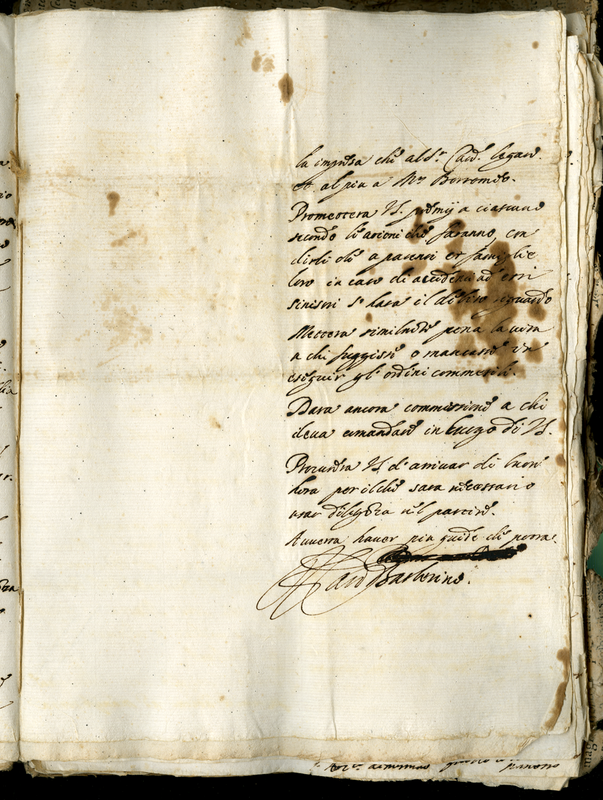 la impresa che al d.º Card. legato
et al piu a M.r Borromeo.
Promettera VS. premij a ciascuno
secondo le attioni che faranno, con
dirli che a parenti et famiglie
loro in caso di accidenti ad essi
sinistri si hara il debito riguardo
Mettera similmte pena la vita
a chi fuggisse o mancasse in
eseguir gl' ordini commessili.
Dara ancora commissione a chi
deva comandare in luogo di VS.
Procurera VS. d' arrivar di buon'
hora per il che sara necessario
usar diligenza nel partire.
Avverta haver piu guide che potra.
Card Barberino.